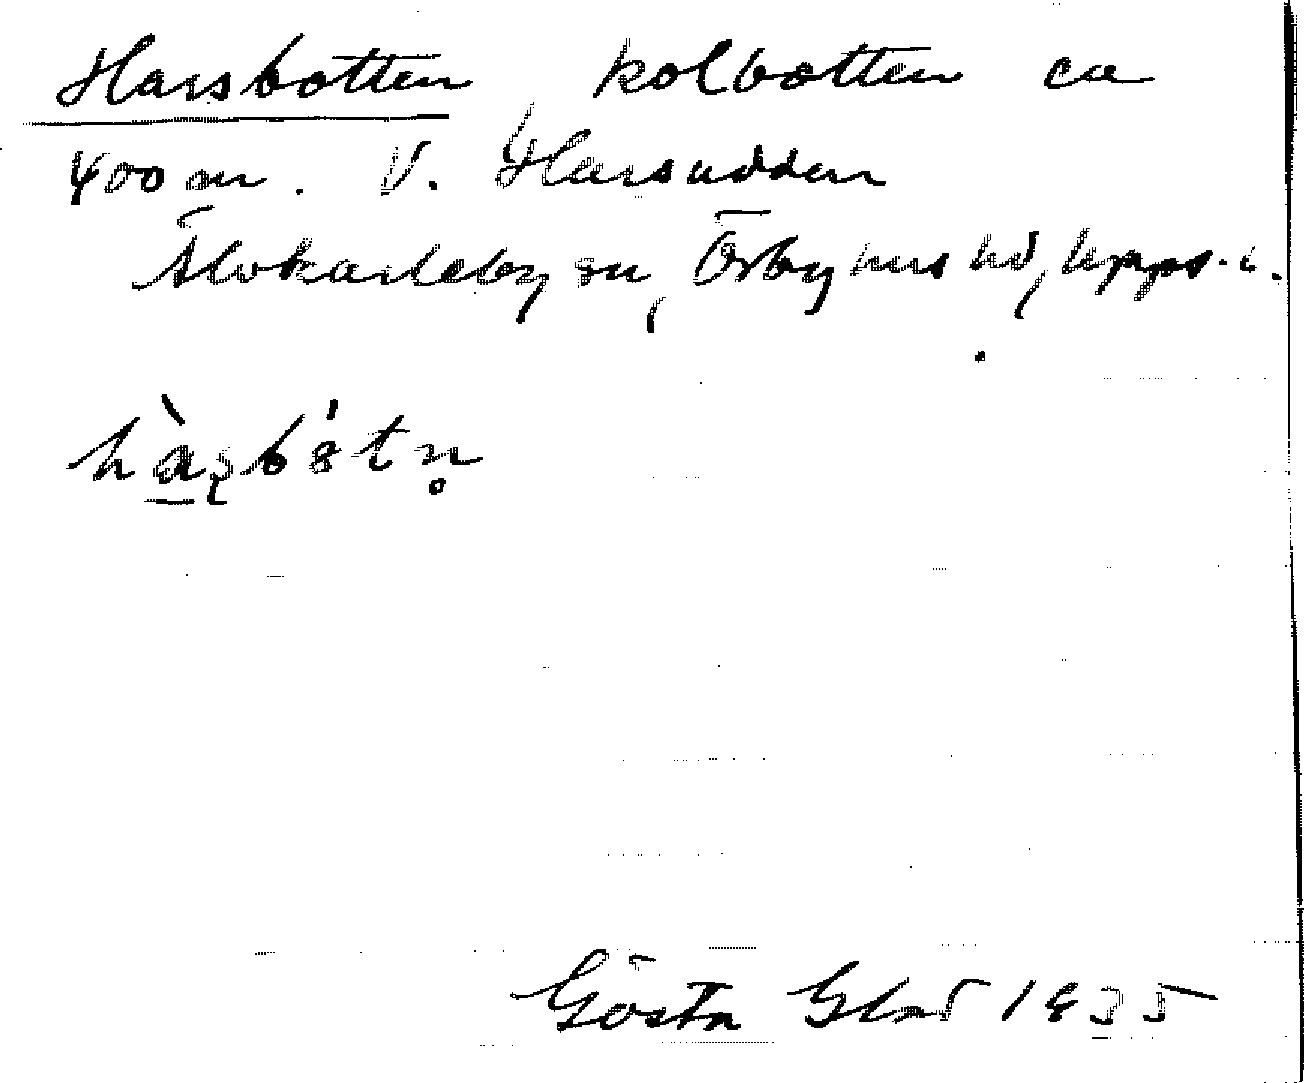 Harsbotten, kolbotten ca
400 m. V. Harsudden
Älvkarleby sn, Örbyhus hd, Upps. l.
hàʂbótn̥
Gösta Glad 1935